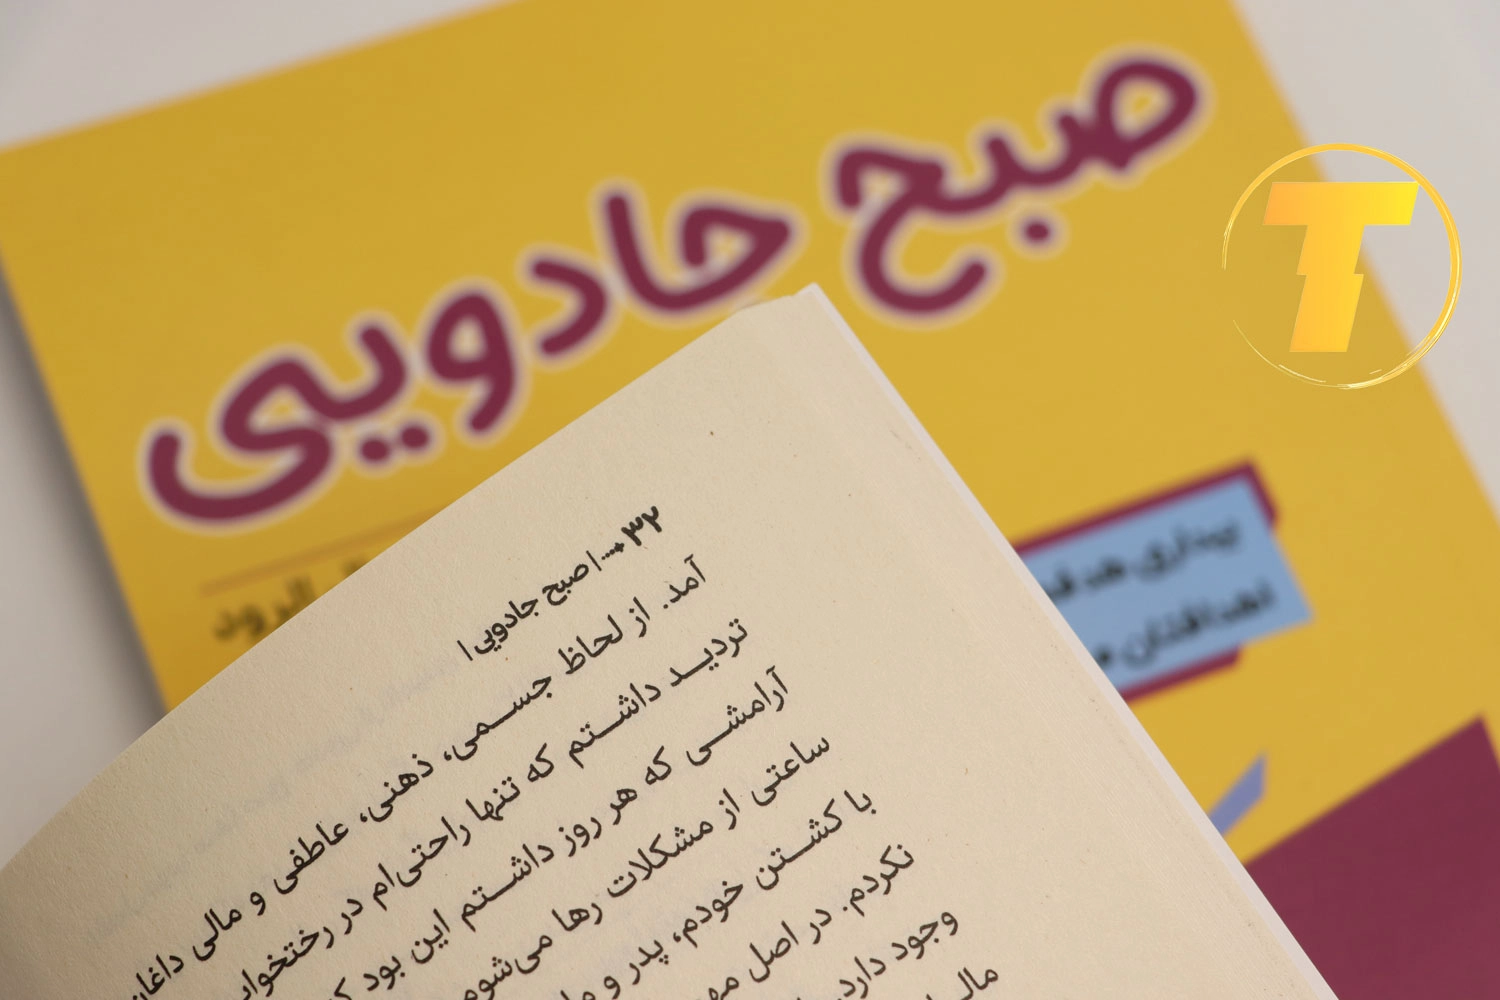 صبح جادویی
T
بیداری هدفم
اهدافتان م
الرود
۳۲ | صبح جادویی |
آمد. از لحاظ جسمی، ذهنی، عاطفی و مالی داغان
تردید داشتم که تنها راحتی‌ام در رختخواب
آرامشی که هر روز داشتم این بود که
ساعتی از مشکلات رها می‌شوم
با کشتن خودم، پدر و ما
نکردم. در اصل مهم
وجود دارد.
مالی